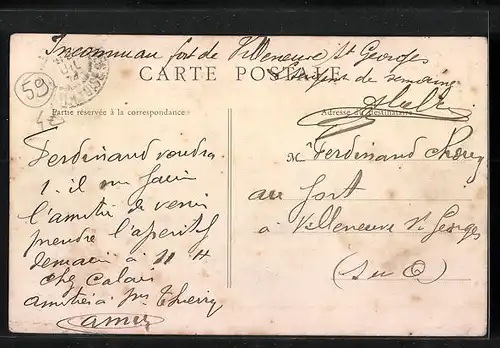 Inconnu au fort de Villeneuve St Georges
Sergent de semaine
CARTE POSTALE
59
Partie réservée à la correspondance
Adresse du destinataire
Ferdinand voudra
t-il me faire
l'amitié de venir
prendre l'apéritif
demain à 11 H
chez Calais
amitiés Thierry
M. Ferdinand
au fort
à Villeneuve St Georges
(S et O)